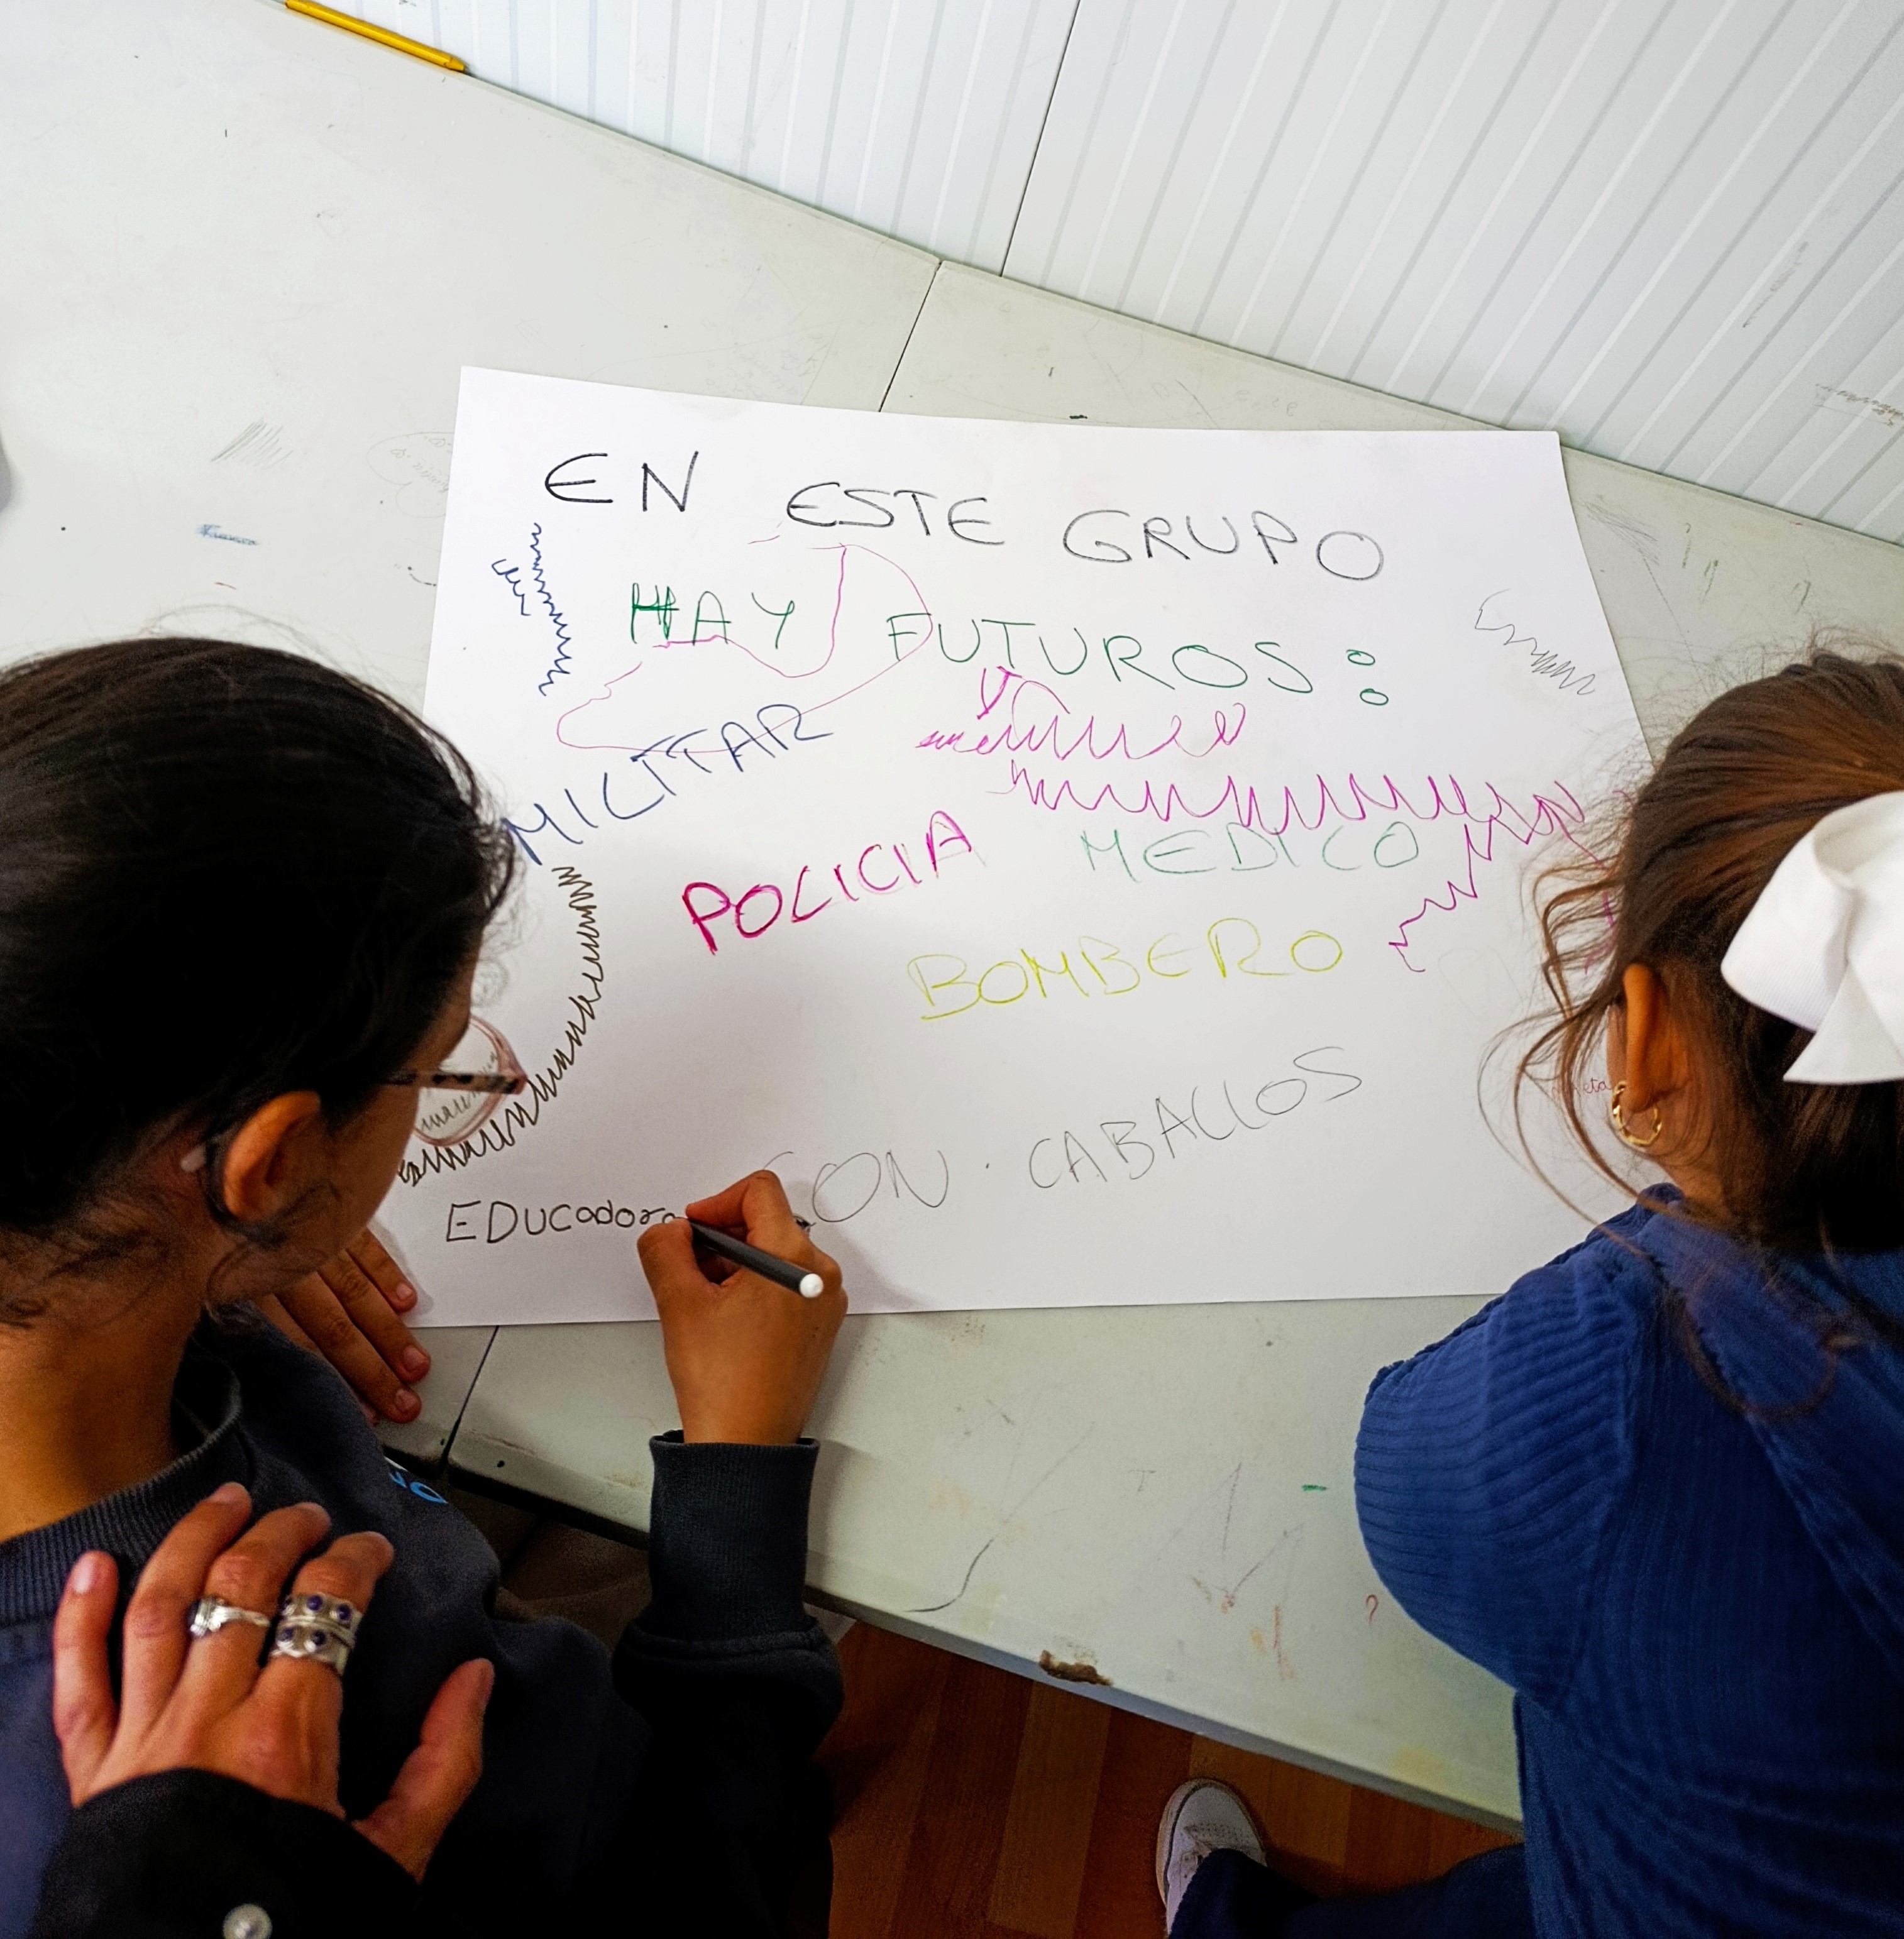 EN ESTE GRUPO
HAY FUTUROS:
MILITAR
POLICIA
MEDICO
BOMBERO
CON CABALLOS
EDUCadora